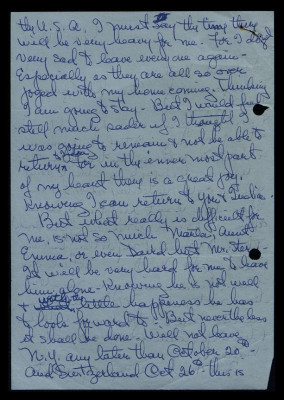 the U.S.A. I must say the time there
will be very heavy for me. For I shall
very sad to leave everyone again.
Especially as they are all so over
joyed with my home coming. Thinking
I am going to stay. But I would feel
still much sadder if I thought I
was going to remain & not be able to
return, for in the inner most part
of my heart there is a great joy,
knowing I can return to you & India.
But what really is difficult for
me, is not so much Mother, Aunt
Emma, or even David but Mr.
It will be very hard for me to leave
him alone - Knowing he is not well
& with so little happiness he has
to look forward to - But nevertheless
it shall be done - Will not leave
N.Y. any later than October 20
and Switzerland Oct 26 - this is